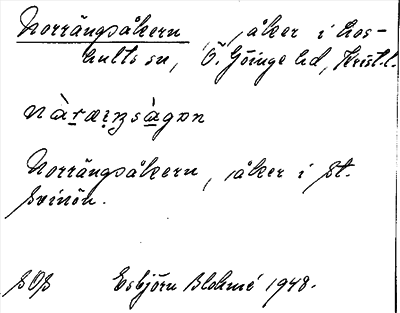 Norrängsåkern, åker i Los-
hults sn, Ö. Göinge hd, Krist.l.
nàræŋsàgon
Norrängsåkern, åker i St.
Svinön.
SOS Esbjörn Blohmé 1948.